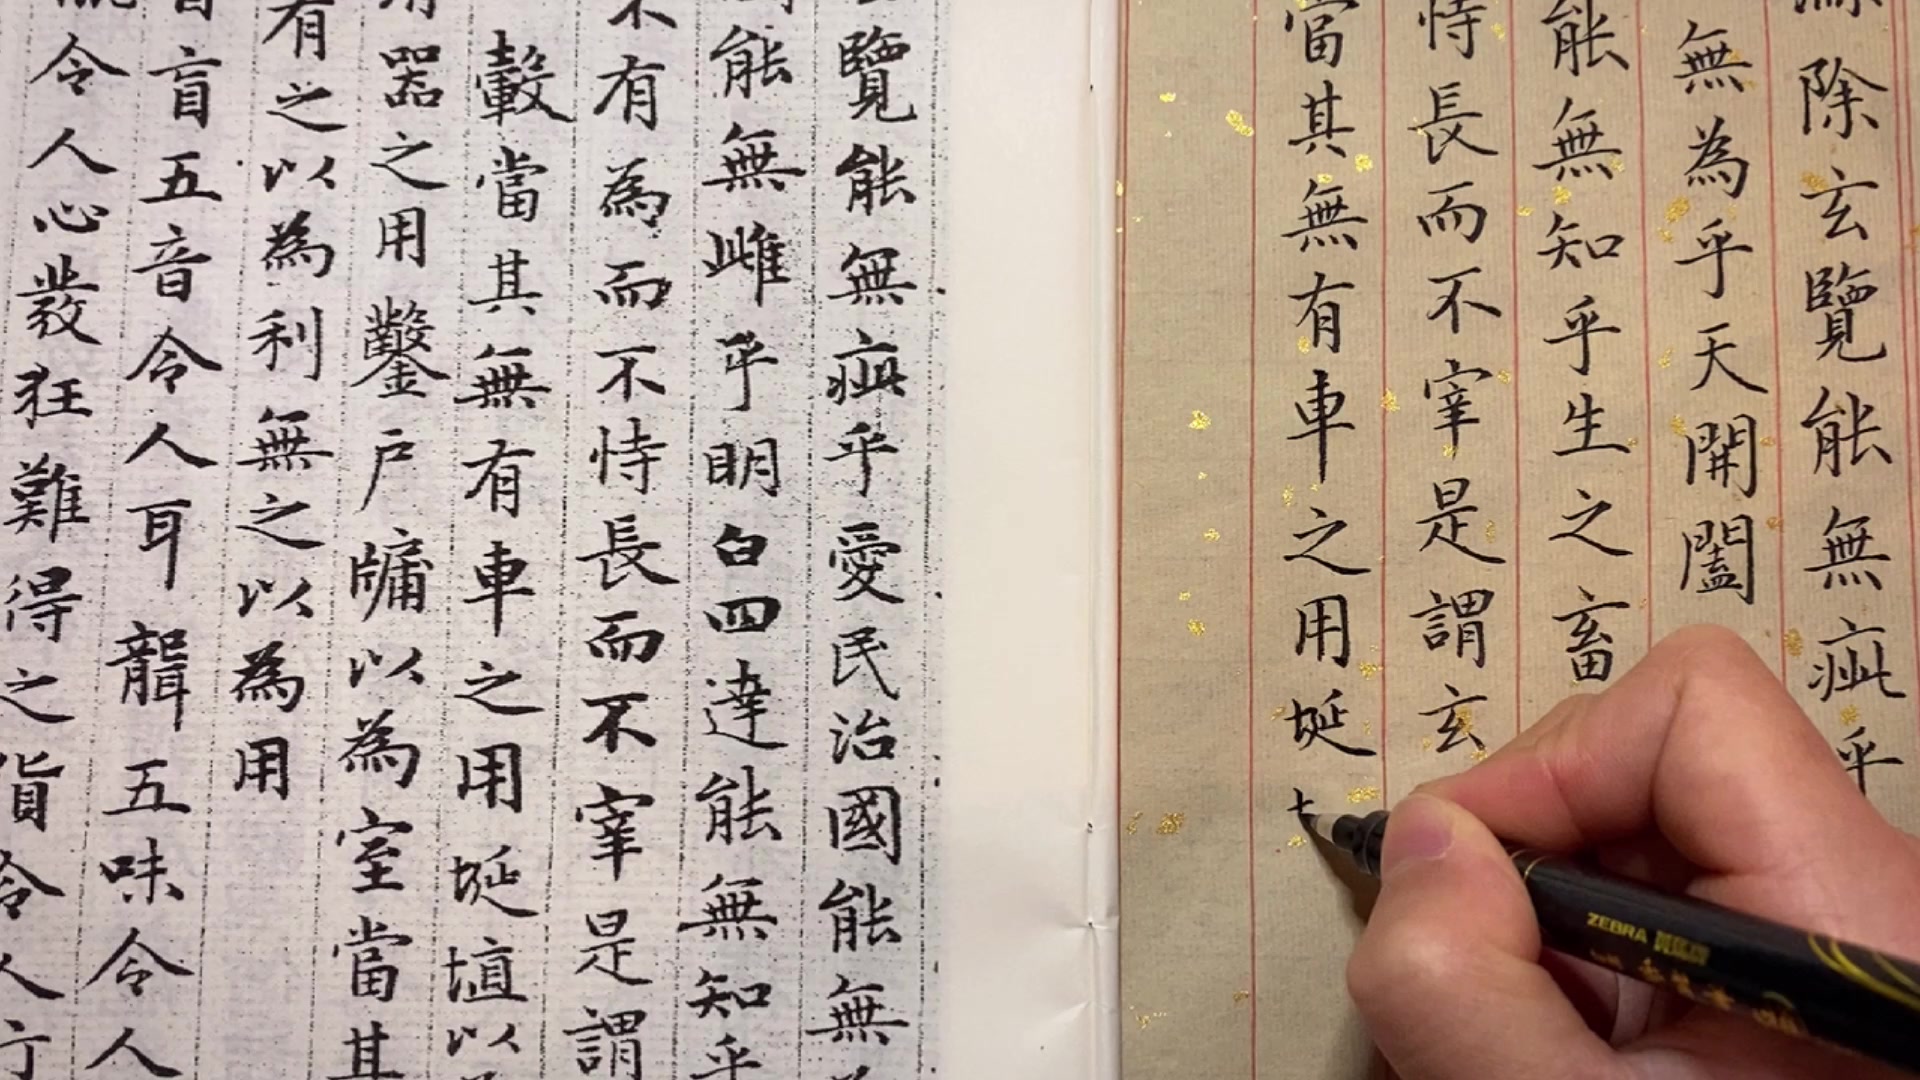 除玄覽能無疵乎
無為乎天開闔
能無知乎生之畜
恃長而不宰是謂玄
當其無有車之用埏
覽能無疵乎愛民治國能無
能無雌乎明白四達能無知乎
不有為而不恃長而不宰是謂
轂當其無有車之用埏埴以
器之用鑿戶牖以為室當其
有之以為利無之以為用
盲五音令人耳聾五味令人
令人心發狂難得之貨令人
ZEBRA